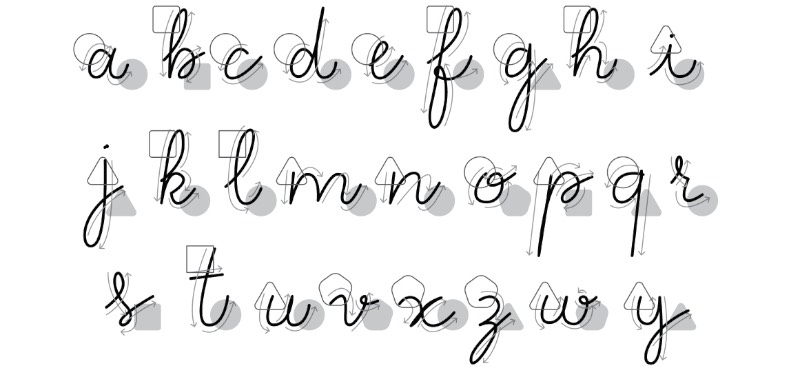 a b c d e f g h i
j k l m n o p q r
s t u v x z w y